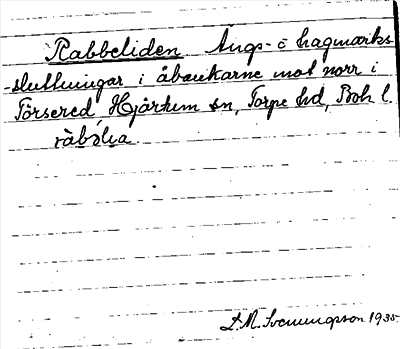 Rabbeliden Ängs- o hagmarks
-sluttningar i åbackarne mot norr i
Törsered Hjärtum sn, Torpe hd, Boh. l.
ràbəlia
D. A. Svenungsson 1935.